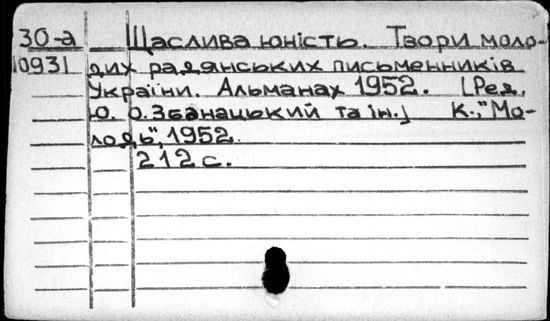 30-а Щаслива юність. Твори моло-
10931 дих радянських письменників
України. Альманах 1952. [Ред.
Ю. О. Збанацький та ін.] К., "Мо-
лодь", 1952.
212 с.